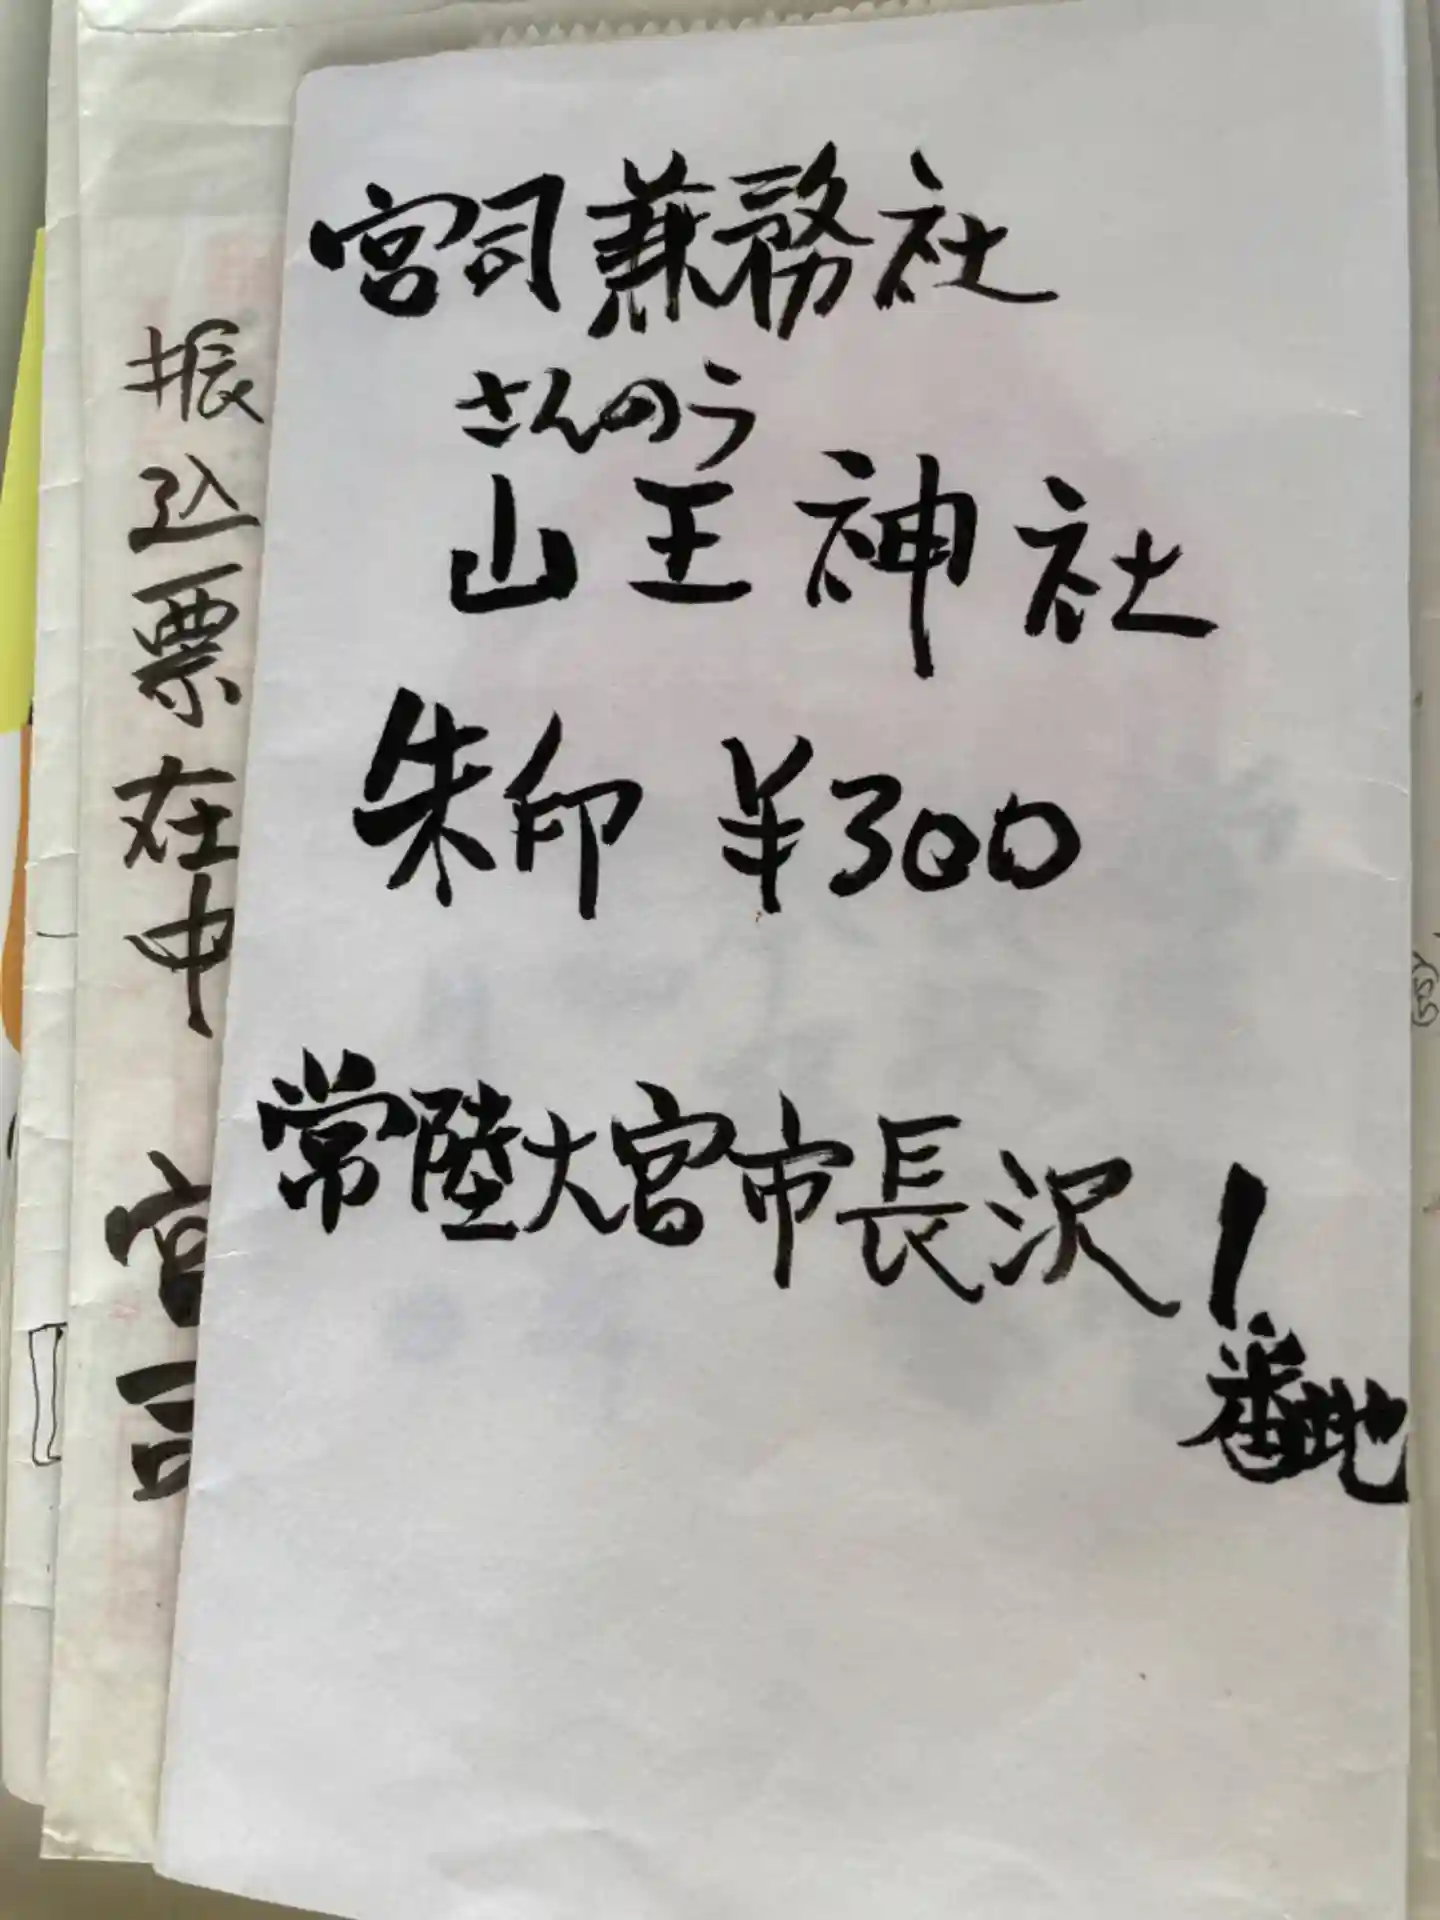 宮司兼務社
さんのう
山王神社
朱印 ¥300
常陸大宮市長沢1
番地
振込票在中
宮司